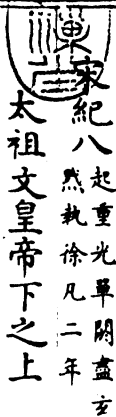 宋紀八 起重光單閼盡玄
黓執徐凡二年
太祖文皇帝下之上